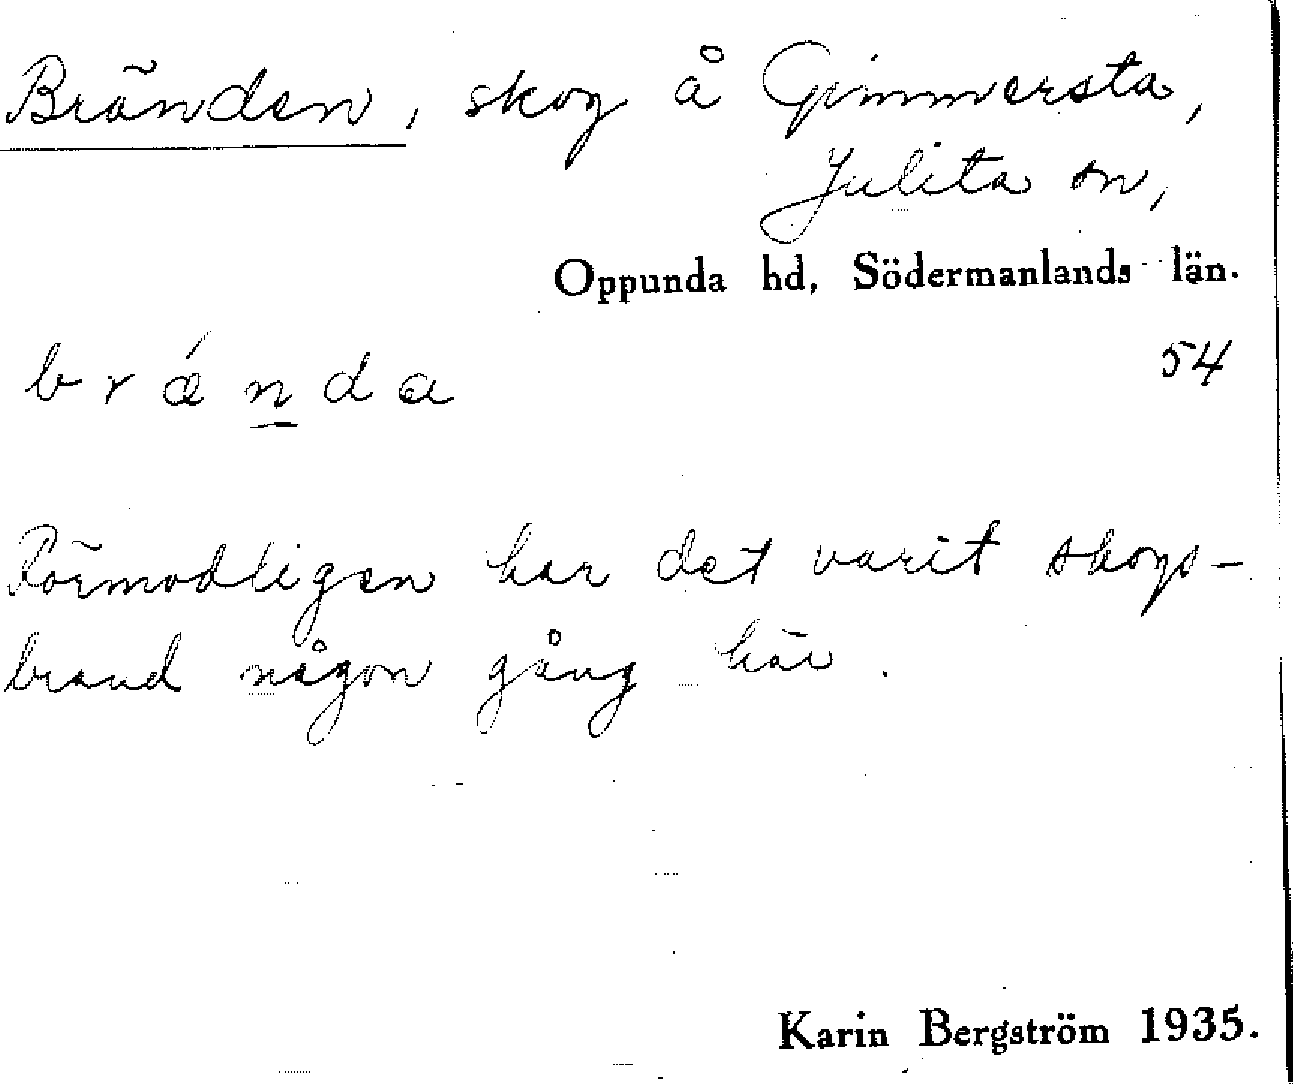 Brånden, skog å Gimmersta,
Julita sn,
Oppunda hd, Södermanlands län.
b r ǽ n d a
54
Förmodligen har det varit skogs-
brand någon gång här.
Karin Bergström 1935.